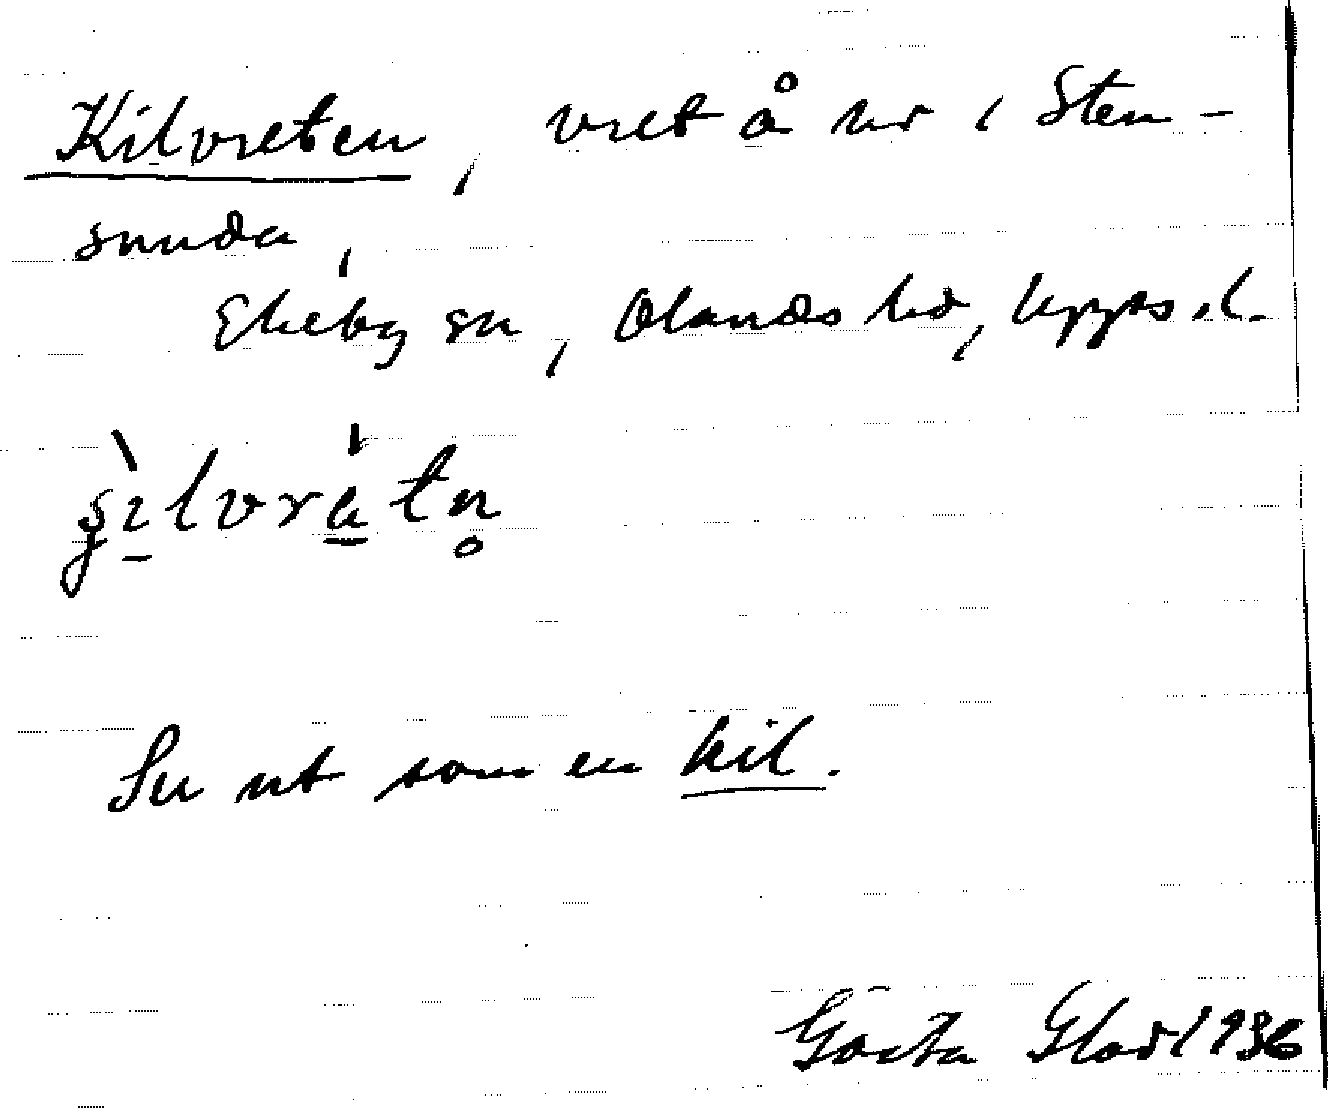 Kilvreten, vret å nr 1 Sten-
sunda,
Ekeby sn, Olands hd, Upps. l.
Ser ut som en kil.
Gösta Glad 1936